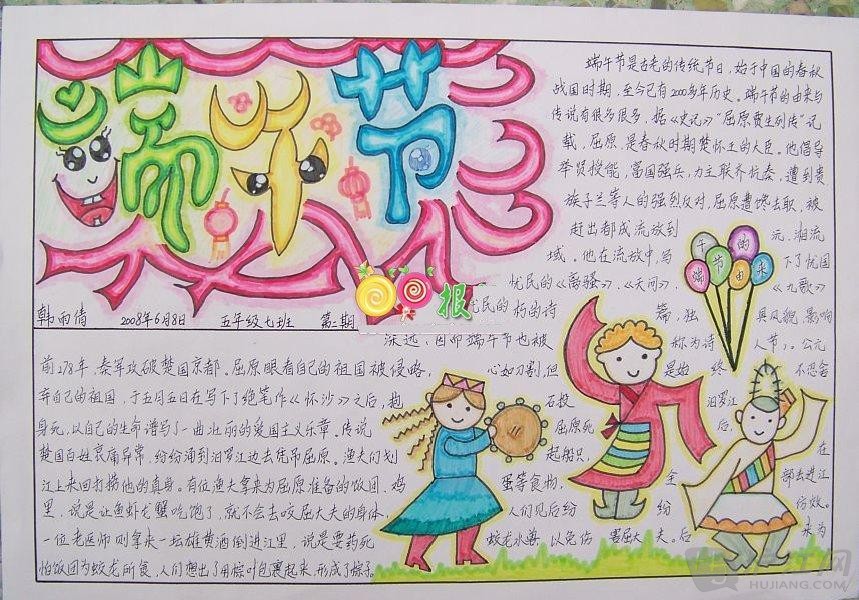 端午节
端午节是古老的传统节日，始于中国的春秋
战国时期，至今已有2000多年历史。端午节的由来与
传说有很多很多，据《史记》“屈原贾生列传”记
载，屈原，是春秋时期楚怀王的大臣。他倡导
举贤授能，富国强兵，力主联齐抗秦，遭到贵
族子兰等人的强烈反对，屈原遭馋去职，被
赶出都成流放到 元、湘流
域。他在流放中，写 下了忧国
忧民的《离骚》、《天问》、 《九歌》
忧民的 朽的诗 篇，独 具风貌，影响
深远，因而端午节也被 称为诗 人节）。公元
午 的
端 节 由 来
报
韩雨倩 2008年6月8日 五年级七班 第二期
前278年，秦军攻破楚国京都。屈原眼看自己的祖国被侵略， 心如刀割，但 是始 终 不忍舍
弃自己的祖国，于五月五日在写下了绝笔作《怀沙》之后，抱 石投 汨罗江
身死，以自己的生命谱写了一曲壮丽的爱国主义乐章。传说 屈原死 后，
楚国百姓哀痛异常，纷纷涌到汨罗江边去凭吊屈原。渔夫们划 起船只， 在
江上来回打捞他的真身。有位渔夫拿来为屈原准备的饭团、鸡 蛋等食物， 全 部丢进江
里，说是让鱼虾龙蟹吃饱了，就不会去咬屈大夫的身体， 人们见后纷 纷 仿效。
一位老医师则拿来一坛雄黄酒倒进江里，说是要药死 蛟龙水兽，以免伤 害屈大 夫。后 来为
怕饭团为蛟龙所食，人们想出了用棕叶包裹起来，形成了棕子。
HUJIANG.COM